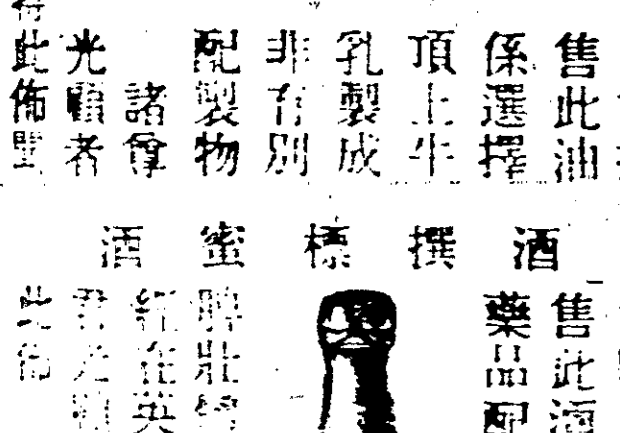 售此油
係選擇
頂上牛
乳製成
非有別
配製物
諸尊
光顧者
此佈聞
酒撰標蜜酒
售此酒
藥品配
脾壯
紅在英
君光顧
此佈